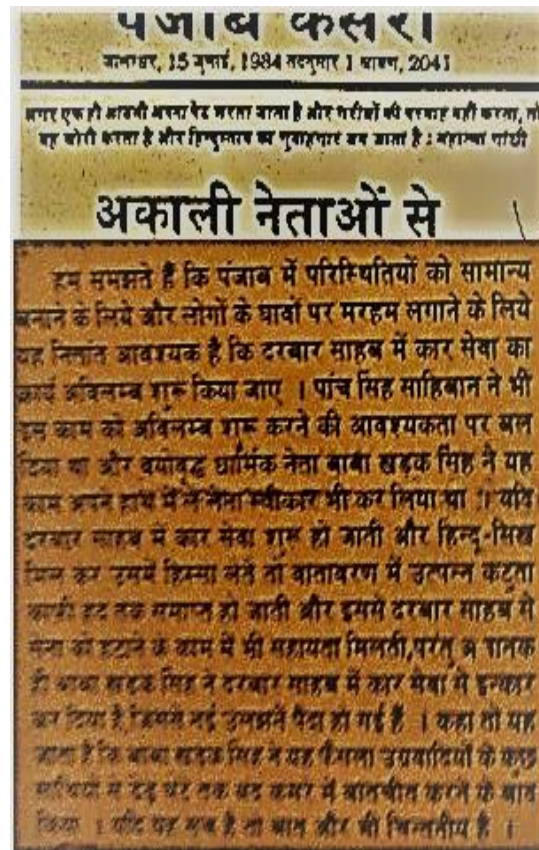 पंजाब केसरी
जालन्धर, 15 जुलाई, 1984 तदनुसार 1 श्रावण, 2041
अगर एक ही आदमी अपना पेट भरता जाता है और गरीबों की परवाह नहीं करता, तो
वह चोरी करता है और हिन्दुस्तान का गुनाहगार बन जाता है : महात्मा गांधी
अकाली नेताओं से
हम समझते हैं कि पंजाब में परिस्थितियों को सामान्य
बनाने के लिये और लोगों के घावों पर मरहम लगाने के लिये
यह नितांत आवश्यक है कि दरबार साहब में कार सेवा का
कार्य अविलम्ब शुरू किया जाए । पांच सिंह साहिबान ने भी
इस काम को अविलम्ब शुरू करने की आवश्यकता पर बल
दिया था और वयोवृद्ध धार्मिक नेता बाबा खड़क सिंह ने यह
काम अपने हाथ में ले लेना स्वीकार भी कर लिया था । यदि
दरबार साहब में कार सेवा शुरू हो जाती और हिन्दू-सिख
मिल कर उसमें हिस्सा लेते तो वातावरण में उत्पन्न कटुता
काफी हद तक समाप्त हो जाती और इससे दरबार साहब से
सेना को हटाने के काम में भी सहायता मिलती,परंतु अचानक
ही बाबा खड़क सिंह ने दरबार साहब में कार सेवा से इन्कार
कर दिया है जिससे नई उलझनें पैदा हो गई हैं । कहा तो यह
जाता है कि बाबा खड़क सिंह ने यह फैसला उग्रवादियों के कुछ
साथियों से डेढ़ घंटे तक बंद कमरे में बातचीत करने के बाद
किया । यदि यह सच है तो बात और भी चिन्तनीय है ।